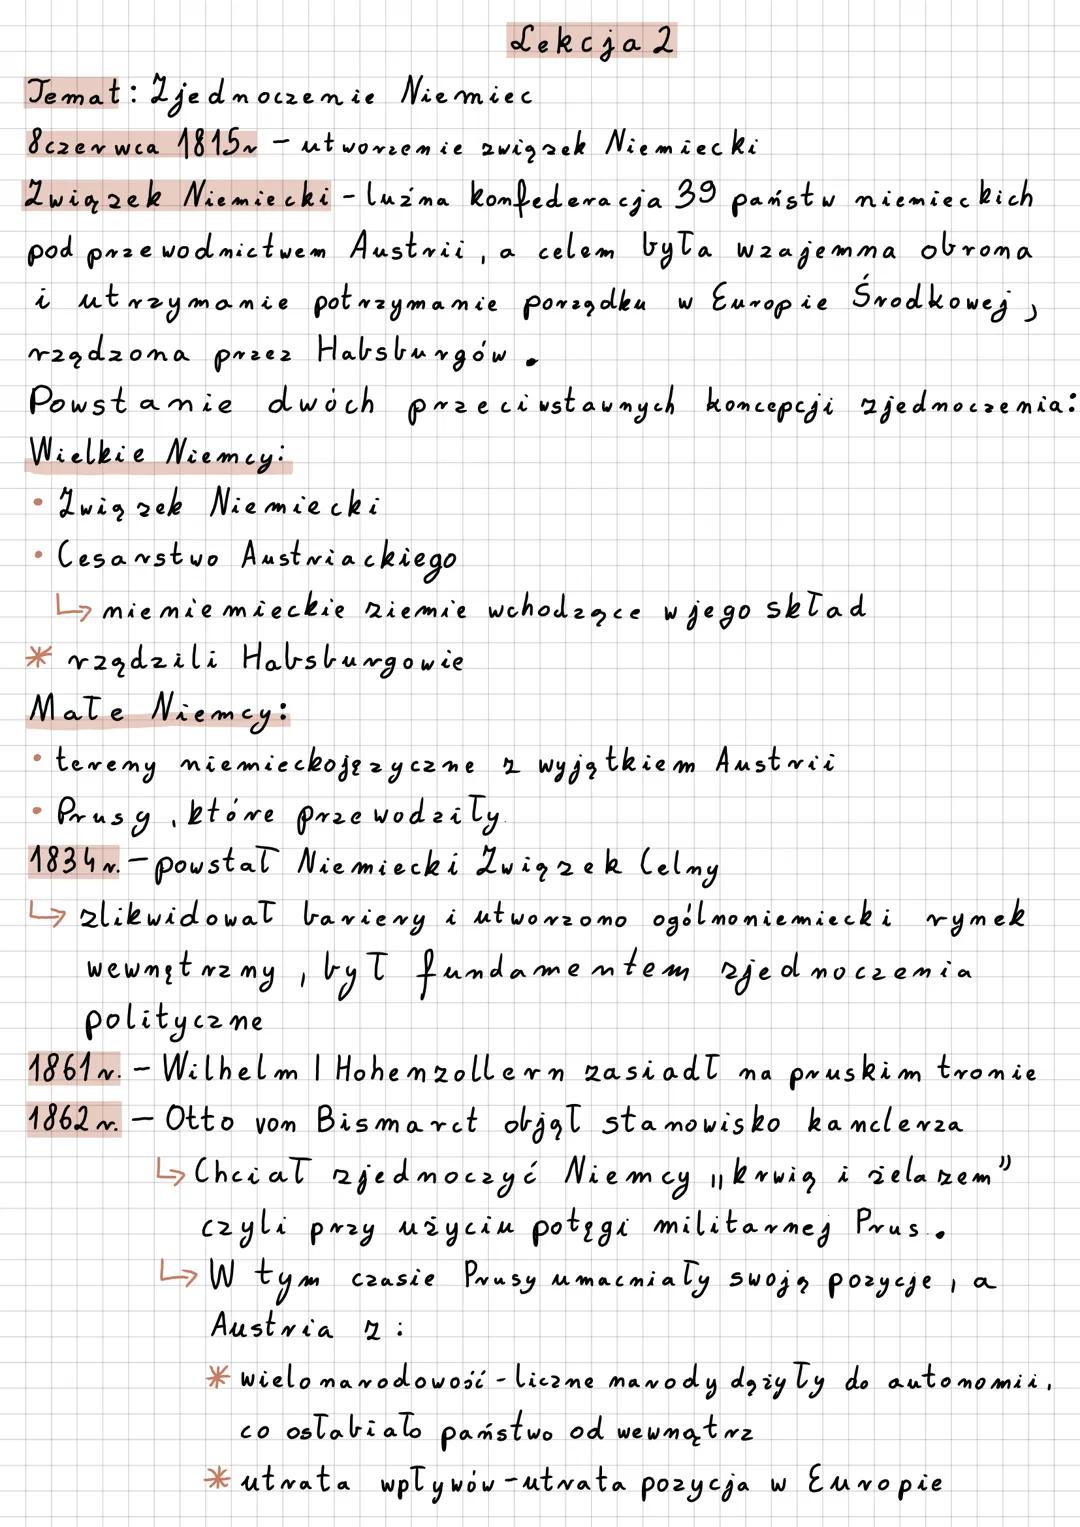 Lekcja 2
Temat: Zjednoczenie Niemiec
8 czerwca 1815r - utworzenie związek Niemiecki
Związek Niemiecki - luźna konfederacja 39 państw niemieckich
pod przewodnictwem Austrii, a celem była wzajemna obrona
i utrzymanie potrzymanie porządku w Europie Środkowej,
rządzona przez Habsburgów.
Powstanie dwóch przeciwstawnych koncepcji zjednoczenia:
Wielkie Niemcy:
• Związek Niemiecki
• Cesarstwo Austriackiego
↳ niemiemieckie ziemie wchodzące w jego skład
* rządzili Habsburgowie
Małe Niemcy:
• tereny niemieckojęzyczne z wyjątkiem Austrii
• Prusy, które przewodziły.
1834 r. - powstał Niemiecki Związek Celny
↳ zlikwidował bariery i utworzono ogólnoniemiecki rynek
wewnętrzny, był fundamentem zjednoczenia
polityczne
1861 r. - Wilhelm I Hohenzollern zasiadł na pruskim tronie
1862 r. - Otto von Bismarct objął stanowisko kanclerza
↳ Chciał zjednoczyć Niemcy "krwią i żelazem"
czyli przy użyciu potęgi militarnej Prus.
↳ W tym czasie Prusy umacniały swoją pozycje, a
Austria z:
* wielonarodowość - liczne narody dążyły do autonomii,
co osłabiało państwo od wewnątrz
* utrata wpływów - utrata pozycja w Europie